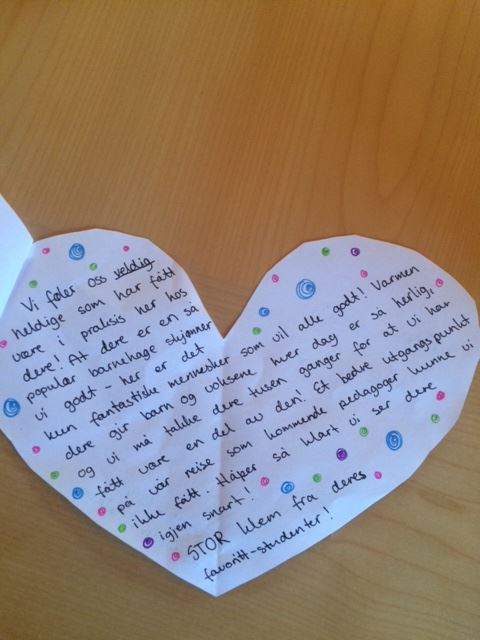 Vi føler oss veldig
heldige som har fått
være i praksis her hos
dere! At dere er en så
populær barnehage skjønner
vi godt – her er det
kun fantastiske mennesker som vil alle godt! Varmen
dere gir barn og voksene hver dag er så herlig,
og vi må takke dere tusen ganger for at vi har
fått være en del av den! Et bedre utgangspunkt
på vår reise som kommende pedagoger kunne vi
ikke fått. Håper så klart vi ser dere
igjen snart!
STOR klem fra deres
favoritt-studenter!